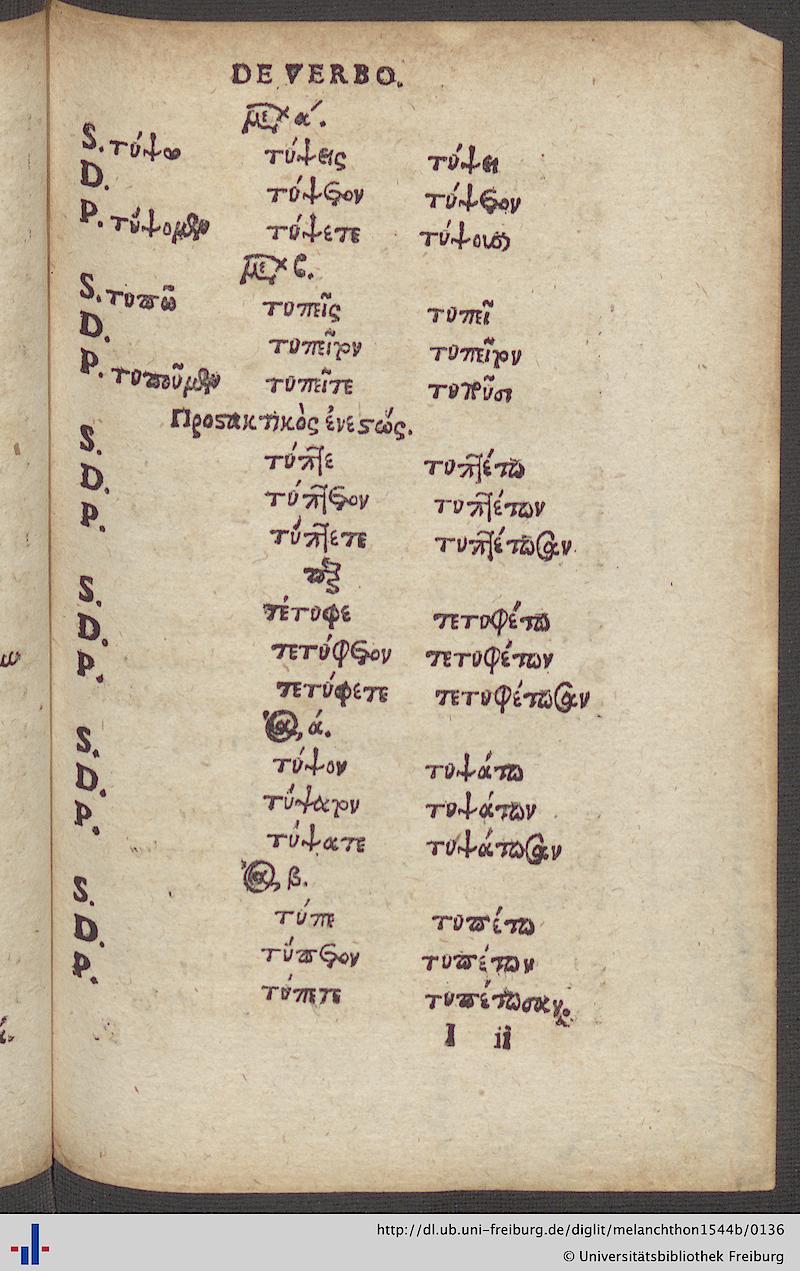 DE VERBO.
μελ α´.
S. τύψω τύψεις τύψει
D. τύψετον τύψετον
P. τύψομεν τύψετε τύψουσι
μελ β.
S. τυπῶ τυπεῖς τυπεῖ
D. τυπεῖτον τυπεῖτον
P. τυποῦμεν τυπεῖτε τυποῦσι
Προστακτικὸς ἐνεστώς.
S. τύπτε τυπτέτω
D. τύπτετον τυπτέτων
P. τύπτετε τυπτέτωσαν
S. τέτυφε τετυφέτω
D. τετύφετον τετυφέτων
P. τετύφετε τετυφέτωσαν
ά.
S. τύψον τυψάτω
D. τύψατον τυψάτων
P. τύψατε τυψάτωσαν
β.
S. τύπε τυπέτω
D. τύπετον τυπέτων
P. τύπετε τυπέτωσαν
I ii
http://dl.ub.uni-freiburg.de/diglit/melanchthon1544b/0136
© Universitätsbibliothek Freiburg